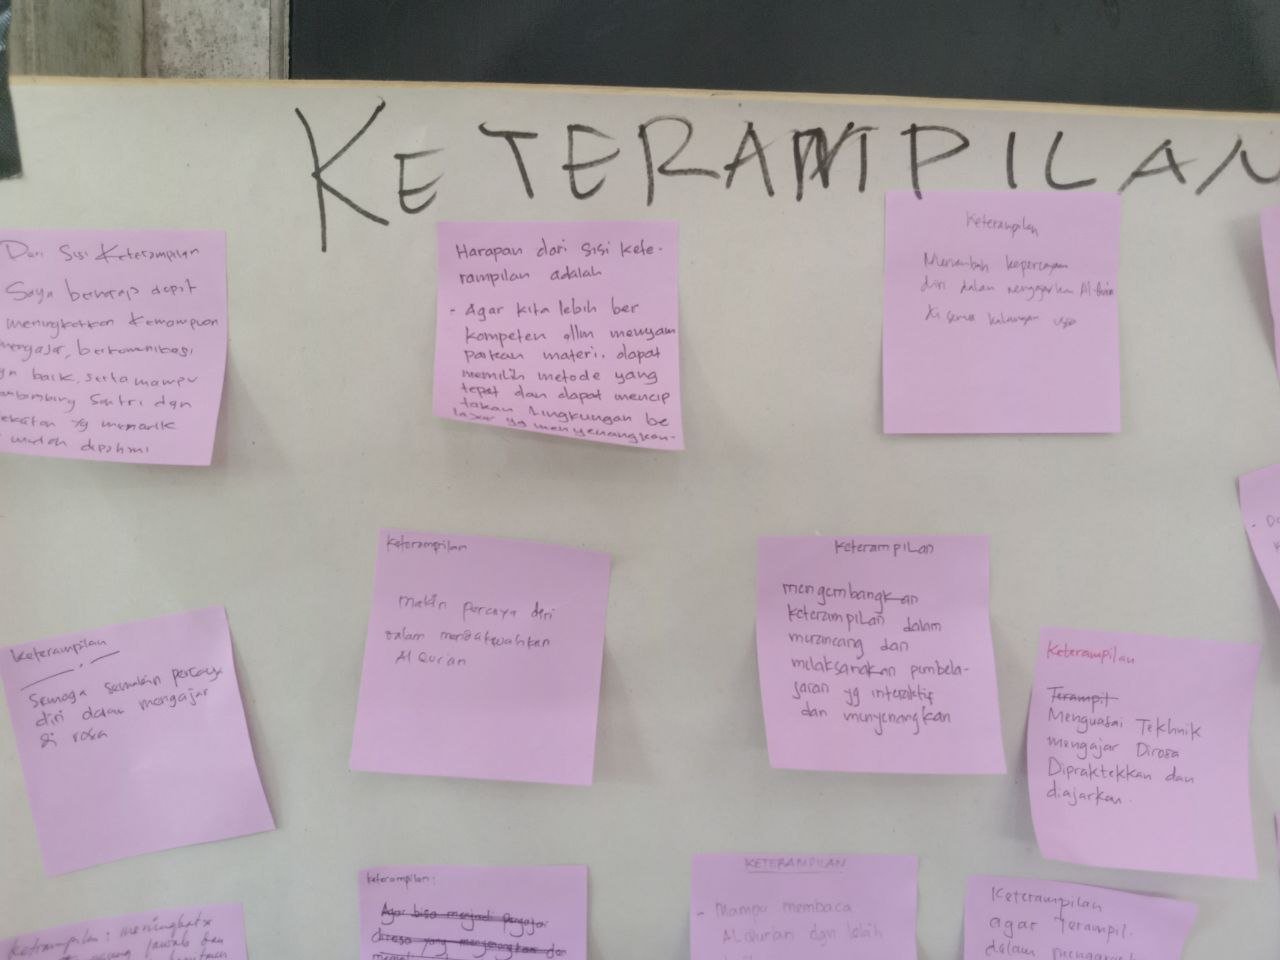 KETERAMPILAN
Dari Sisi Keterampilan
Saya berharap dapat
meningkatkan kemampuan
mengajar, berkomunikasi
baik, serta mampu
Santri dgn
yg menarik
mudah dipahami
Harapan dari sisi kete-
rampilan adalah
- Agar kita lebih ber
kompeten dlm menyam
paikan materi, dapat
memilih metode yang
tepat dan dapat mencip
takan lingkungan be
lajar yg menyenangkan.
Keterampilan
Menambah kepercayaan
diri dalam mengajarkan Al-Qur'an
di semua kalangan usia
Keterampilan
Semoga semakin percaya
diri dalam mengajar
Keterampilan
Makin percaya diri
dalam mendakwahkan
Al Qur'an
Keterampilan
mengembangkan
keterampilan dalam
merancang dan
melaksanakan pembela-
jaran yg interaktif
dan menyenangkan
Keterampilan
Terampil
Menguasai Tekhnik
mengajar Dirosa
Dipraktekkan dan
diajarkan.
keterampilan:
Agar bisa menjadi pengajar
dirosa yang menyenangkan dan
KETERAMPILAN
- Mampu membaca
Al Qur'an dgn lebih
Keterampilan
agar terampil.
dalam